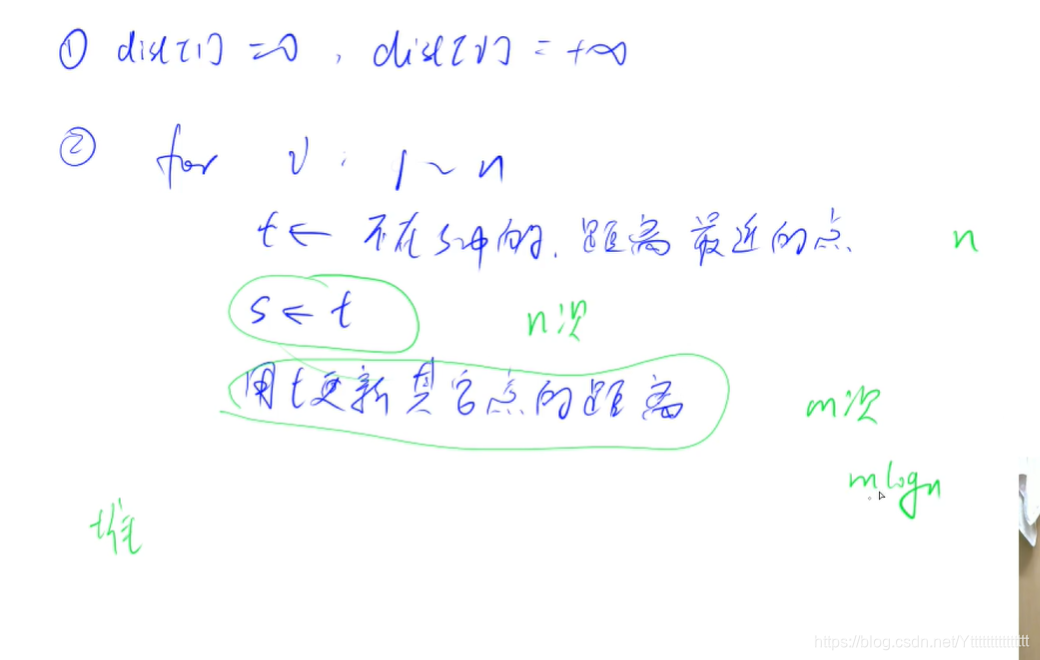 ① dist[1] = 0, dist[v] = +∞
② for v: 1 ~ n
t ← 不在s中的, 距离最近的点 n
s ← t n次
用t更新其它点的距离 m次
mlogn
堆
https://blog.csdn.net/Yttttttttttttttt